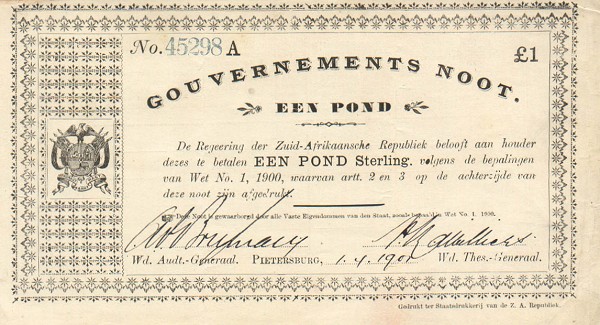 No. 45298 A £1
GOUVERNEMENTS NOOT.
EEN POND
De Regeering der Zuid-Afrikaansche Republiek belooft aan houder
dezes te betalen EEN POND Sterling, volgens de bepalingen
van Wet No. 1, 1900, waarvan artt. 2 en 3 op de achterzijde van
deze noot zijn afgedrukt.
Deze Noot is gewaarborgd door alle Vaste Eigendommen van den Staat, zooals bepaald in Wet No. 1, 1900.
Wd. Audt.-Generaal. PIETERSBURG, 1.4.1901 Wd. Thes.-Generaal.
Gedrukt ter Staatsdrukkerij van de Z. A. Republiek.